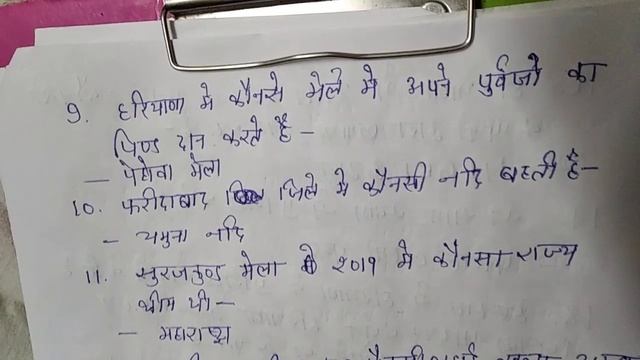 9. हरियाणा मे कौनसे मेले मे अपने पुर्वजो का
पिण्ड दान करते है -
- पेहोवा मेला
10. फरीदाबाद जिले मे कौनसी नदि बहती है -
- यमुना नदि
11. सुरजकुण्ड मेला 2019 मे कौनसा राज्य
थीम थी -
- महाराष्ट्र